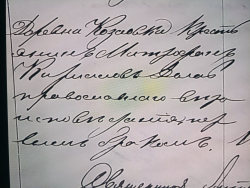 Деревни Козловки Кресть
янинъ Митрофанъ
Кириловъ
православнаго вѣро
исповѣданія, пер
вымъ бракомъ.
Священникъ